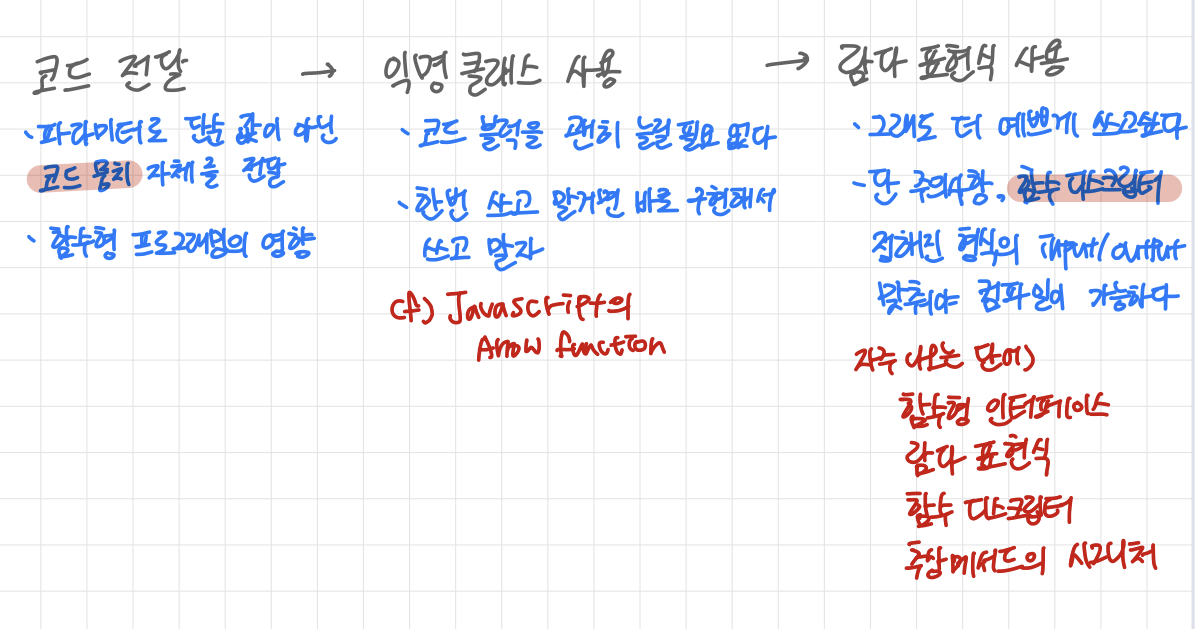 코드 전달 → 익명 클래스 사용 → 람다 표현식 사용
· 파라미터로 단순 값이 아닌
코드 뭉치 자체를 전달
· 함수형 프로그래밍의 영향
· 코드 블럭을 괜히 늘릴 필요 없다
· 한번 쓰고 말거면 바로 구현해서
쓰고 말자
cf) Javascript의
Arrow function
· 그래도 더 예쁘게 쓰고싶다
· 단 주의사항, 함수 디스크립터
정해진 형식의 input/output
맞춰야 컴파일이 가능하다
자주 나오는 단어)
함수형 인터페이스
람다 표현식
함수 디스크립터
추상메서드의 시그니처